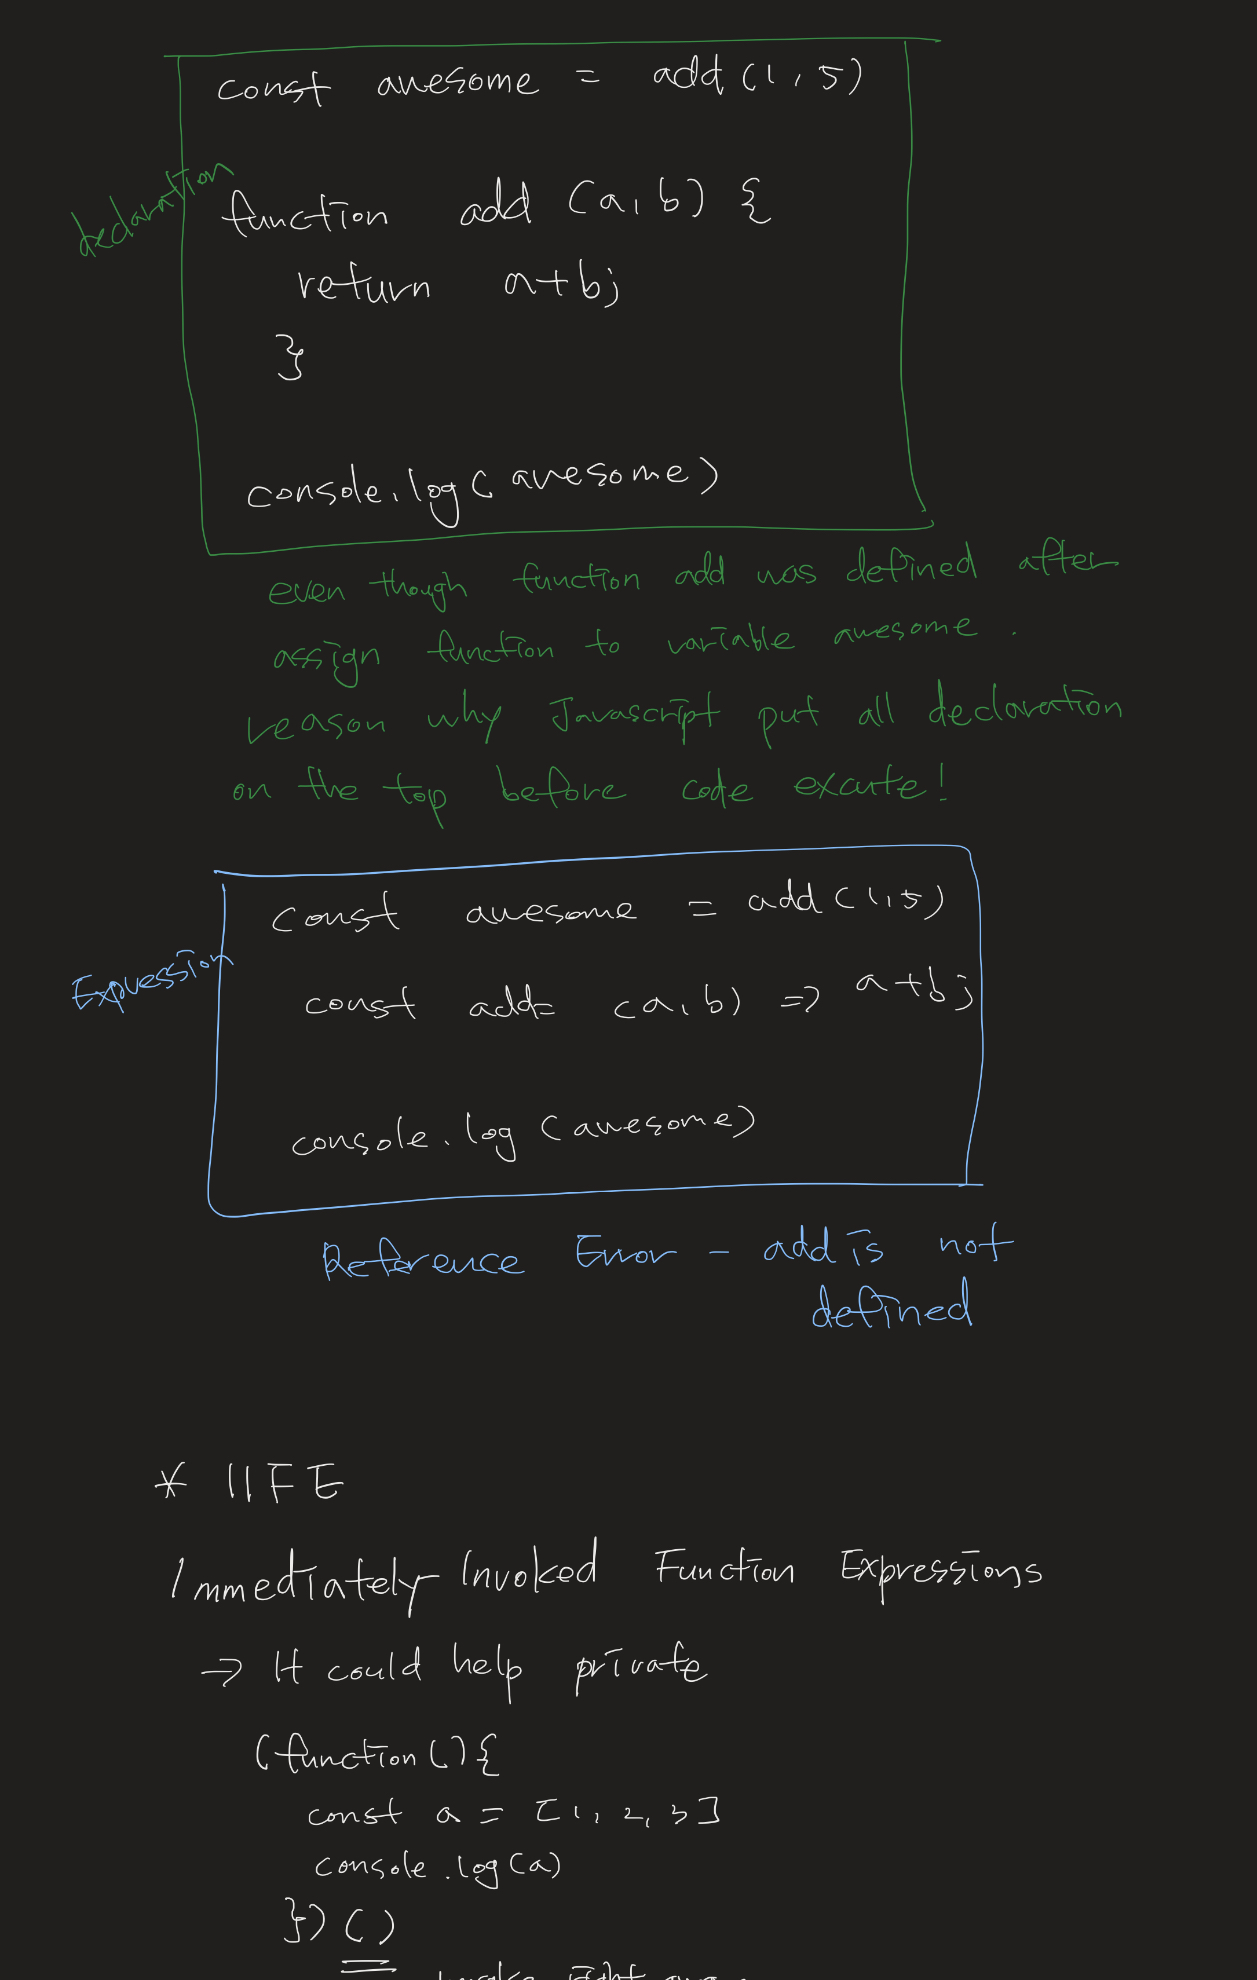 const awesome = add (1, 5)
declaration
function add (a, b) {
return a+b;
}
console.log( awesome)
even though function add was defined after
assign function to variable awesome.
reason why Javascript put all declaration
on the top before code excute!
const awesome = add (1,5)
Expression
const add= (a, b) => a+b;
console.log (awesome)
Reference Error - add is not
defined
* IIFE
Immediately Invoked Function Expressions
→ It could help private
(function () {
const a = [1, 2, 3]
console.log(a)
}) ()
right